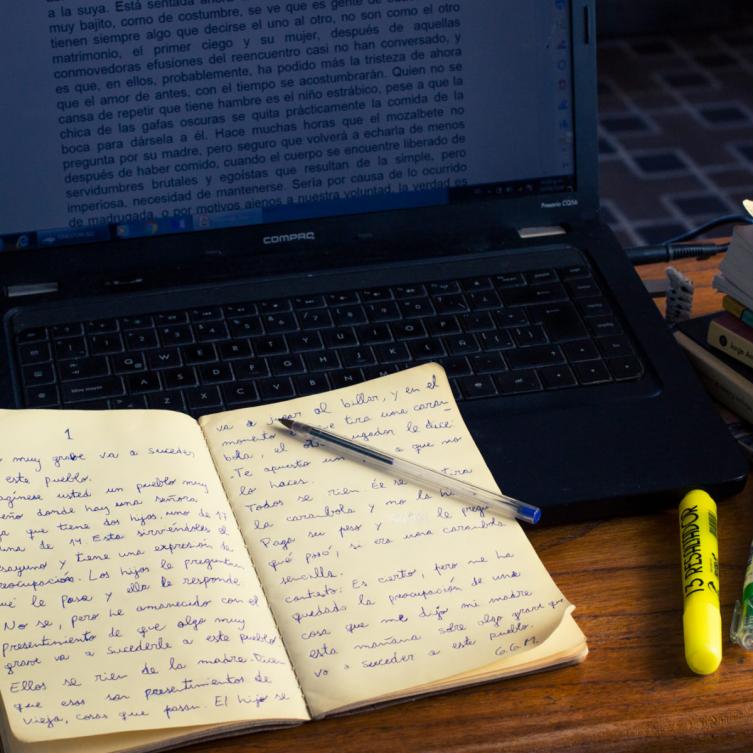 a la suya. Está sentada ahora
muy bajito, como de costumbre, se ve que es gente de
tienen siempre algo que decirse el uno al otro, no son como el otro
matrimonio, el primer ciego y su mujer, después de aquellas
conmovedoras efusiones del reencuentro casi no han conversado, y
es que, en ellos, probablemente, ha podido más la tristeza de ahora
que el amor de antes, con el tiempo se acostumbrarán. Quien no se
cansa de repetir que tiene hambre es el niño estrábico, pese a que la
chica de las gafas oscuras se quita prácticamente la comida de la
boca para dársela a él. Hace muchas horas que el mozalbete no
pregunta por su madre, pero seguro que volverá a echarla de menos
después de haber comido, cuando el cuerpo se encuentre liberado de
servidumbres brutales y egoístas que resultan de la simple, pero
imperiosa, necesidad de mantenerse. Sería por causa de lo ocurrido
de madrugada, o por motivos ajenos a nuestra voluntad, la verdad es
Presario CQ56
COMPAQ
1
muy grave va a suceder
este pueblo.
usted un pueblo muy
donde hay una señora
que tiene dos hijos, uno de 17
una de 14. Esta sirviéndoles el
y tiene una expresión de
Los hijos le preguntan
le pasa y ella le responde
No se, pero he amanecido con el
presentimiento de que algo muy
grave va a sucederle a este pueblo
Ellos se rien de la madre. Dicen
que esos son presentimientos de
vieja, cosas que pasan. El hijo se
va a jugar al billar, y en el
momento tira una caram-
bola, el jugador le dice:
-Te apuesto un a que no
lo haces.
Todos se rien. Él se tira
la carambola y no la
Paga su peso y le
qué pasó, si era una carambola
sencilla.
contesta: Es cierto, pero me ha
quedado la preocupación de una
cosa que me dijo mi madre
esta mañana sobre algo grave que
va a suceder a este pueblo.
G.G.M.
RESALTADOR